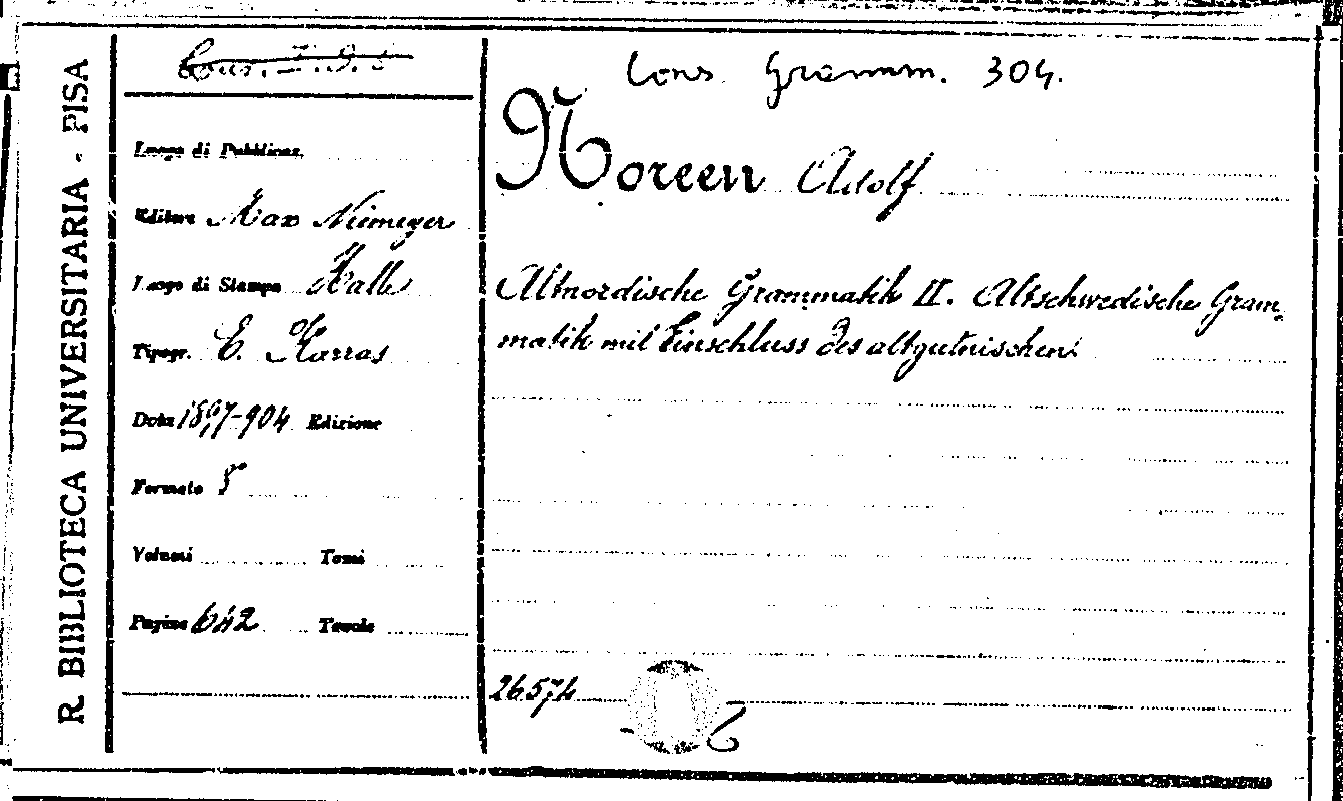 R. BIBLIOTECA UNIVERSITARIA - PISA
Cons. Gramm. 304.
Noreen Adolf
Luogo di Pubblicaz.
Editore Max Niemeyer
Luogo di Stampa Halle
Tipogr. E. Karras
Data 1897-904 Edizione
Formato 8
Volumi Tomi
Pagine 642 Tavole
Altnordische Grammatik II. Altschwedische Gram-
matik mit Einschluss des altgutnischen.
26574